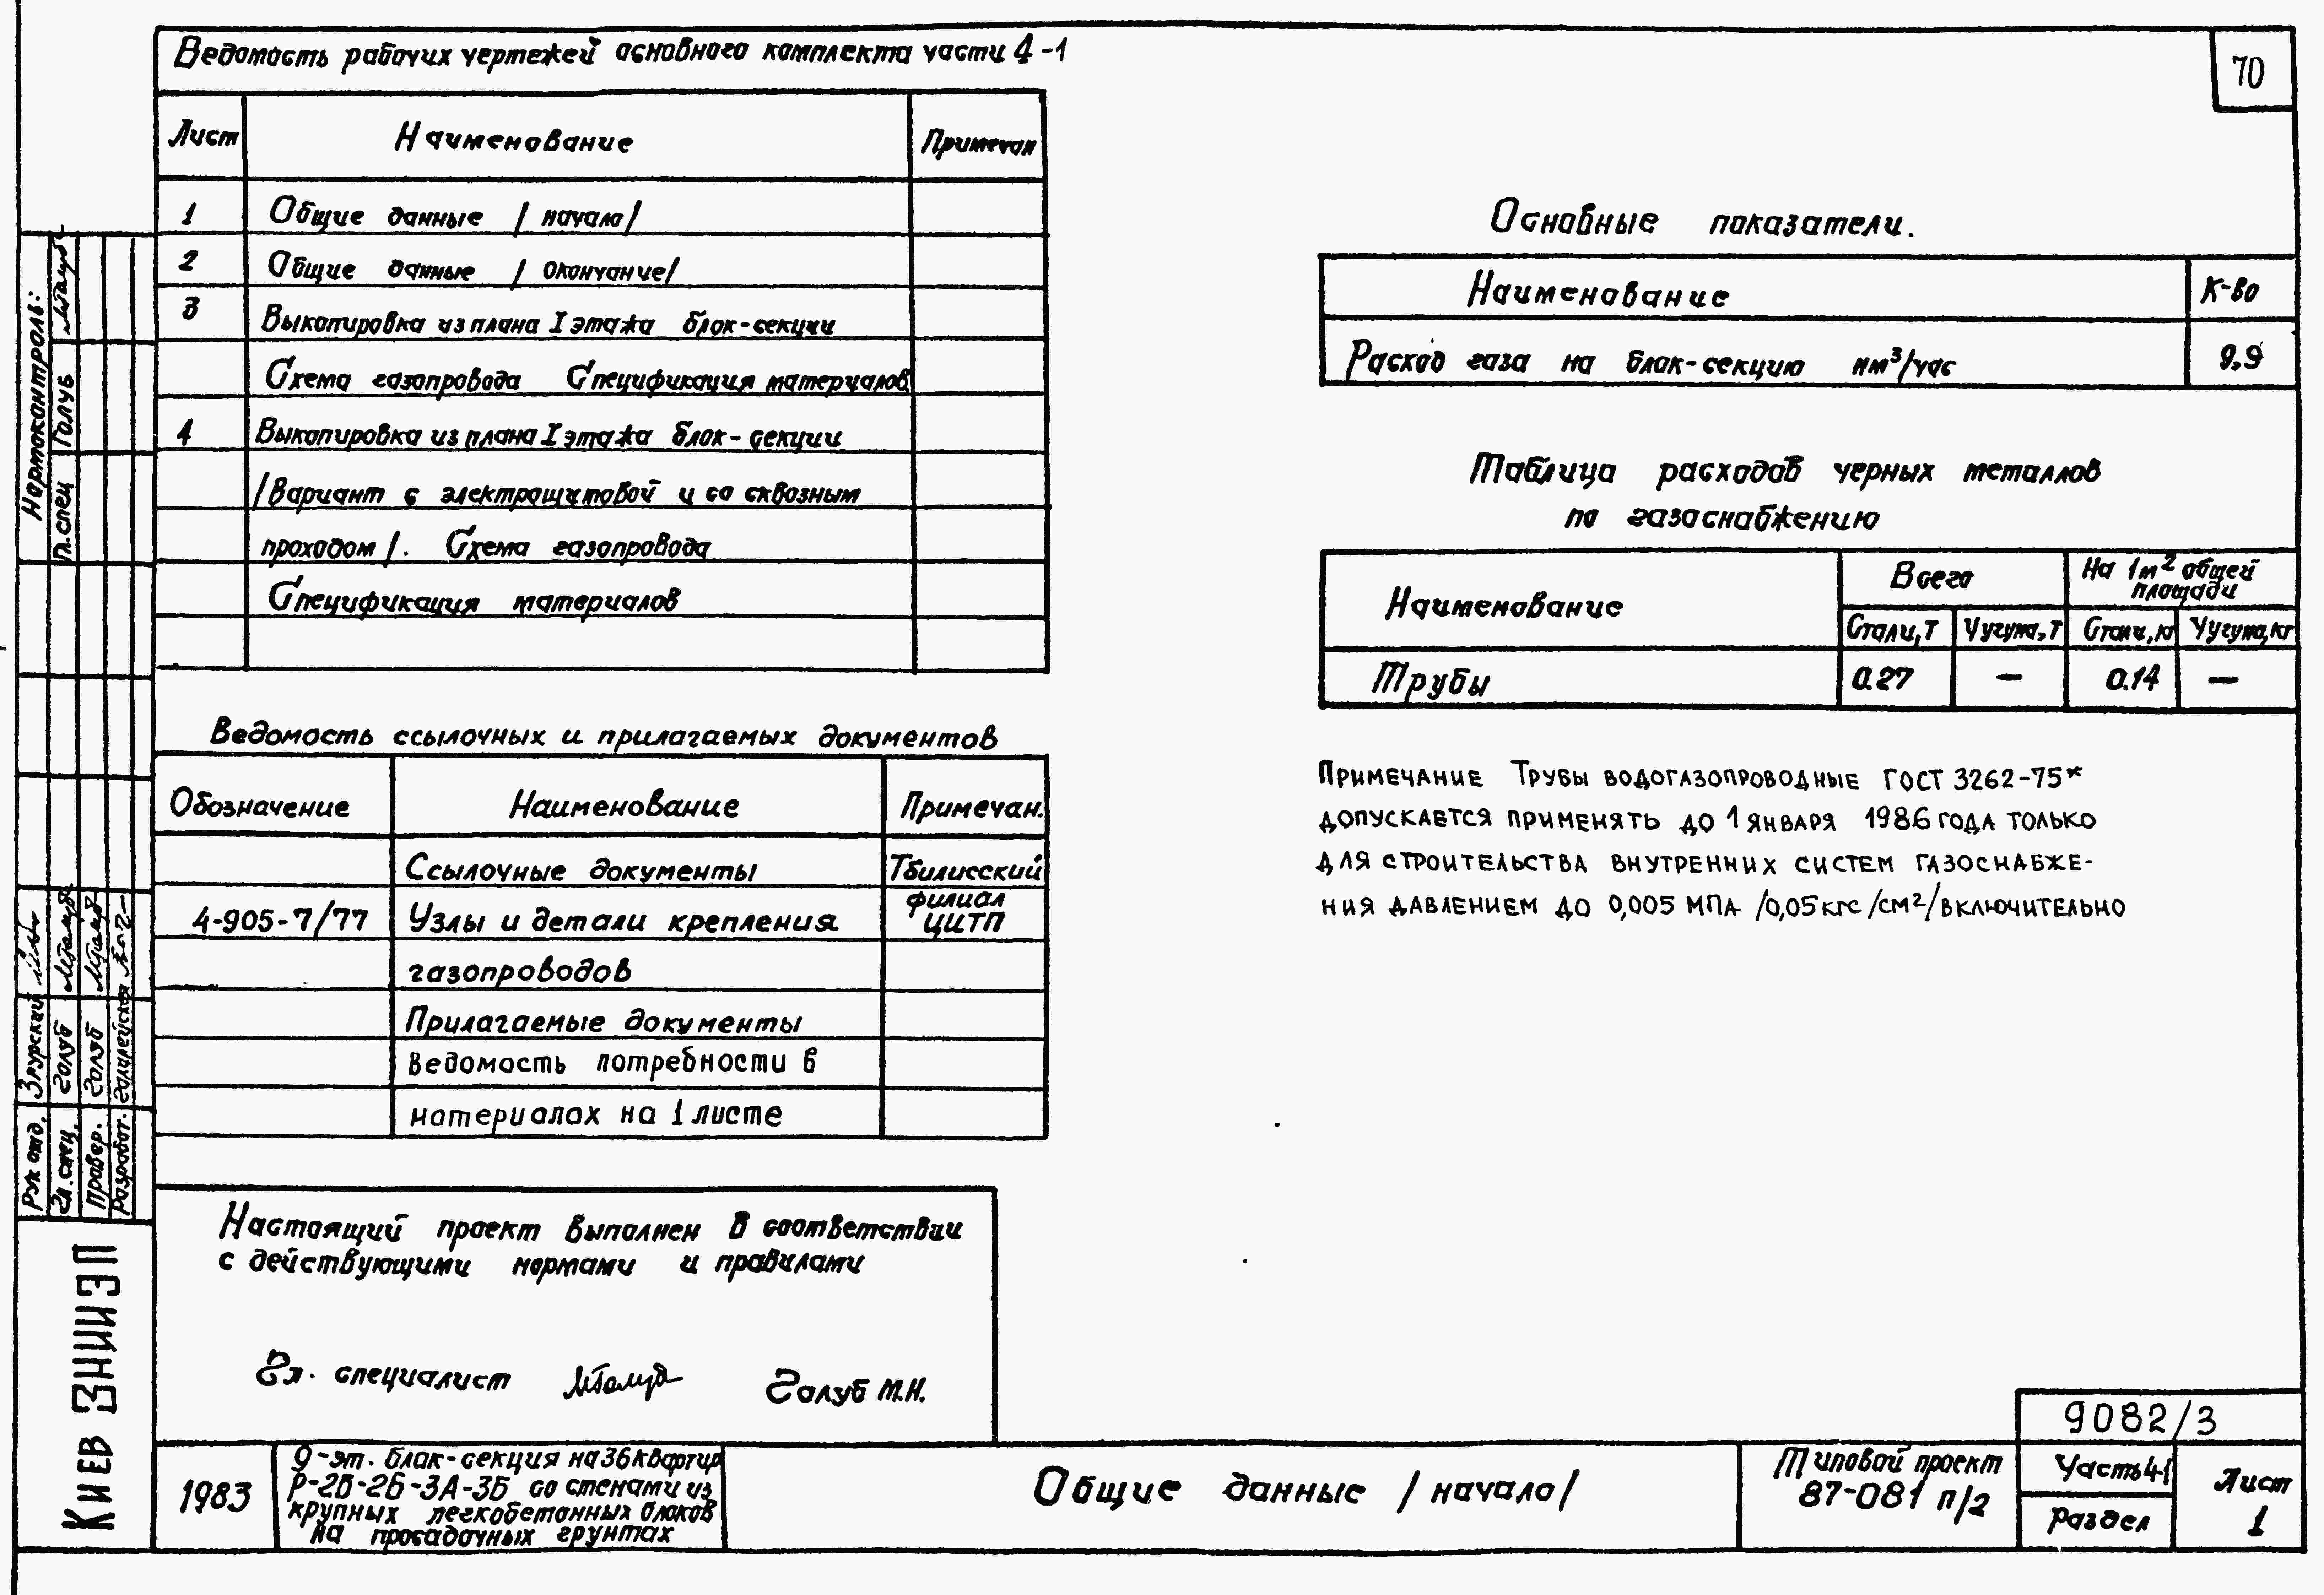 Ведомость рабочих чертежей основного комплекта части 4-1
70
Лист Наименование Примечан
1 Общие данные /начало/
2 Общие данные /окончание/
3 Выкопировка из плана I этажа блок-секции
Схема газопровода Спецификация материалов
4 Выкопировка из плана I этажа блок-секции
/Вариант с электрощитовой и со сквозным
проходом/. Схема газопровода
Спецификация материалов
Ведомость ссылочных и прилагаемых документов
Обозначение Наименование Примечан.
Ссылочные документы Тбилисский
филиал
4-905-7/77 Узлы и детали крепления ЦИТП
газопроводов
Прилагаемые документы
Ведомость потребности в
материалах на 1 листе
Настоящий проект выполнен в соответствии
с действующими нормами и правилами
Гл. специалист Голуб М.Н.
Основные показатели.
Наименование К-во
Расход газа на блок-секцию нм³/час 9,9
Таблица расходов черных металлов
по газоснабжению
Наименование Всего На 1м² общей
площади
Стали,т Чугуна,т Стали,кг Чугуна,кг
Трубы 0.27 — 0.14 —
Примечание Трубы водогазопроводные ГОСТ 3262-75*
допускается применять до 1 января 1986 года только
для строительства внутренних систем газоснабже-
ния давлением до 0,005 МПа /0,05кгс/см²/включительно
Нормоконтроль:
Гл.спец Голуб
Рук отд. Згурский
Гл.спец. Голуб
Провер. Голуб
Разработ.
Киев ЗНИИЭП
1983
9-эт. блок-секция на 36 квартир
Р-2Б-2Б-3А-3Б со стенами из
крупных легкобетонных блоков
на просадочных грунтах
Общие данные /начало/
Типовой проект
87-081 п/2
9082/3
Часть 4-1
Раздел
Лист
1